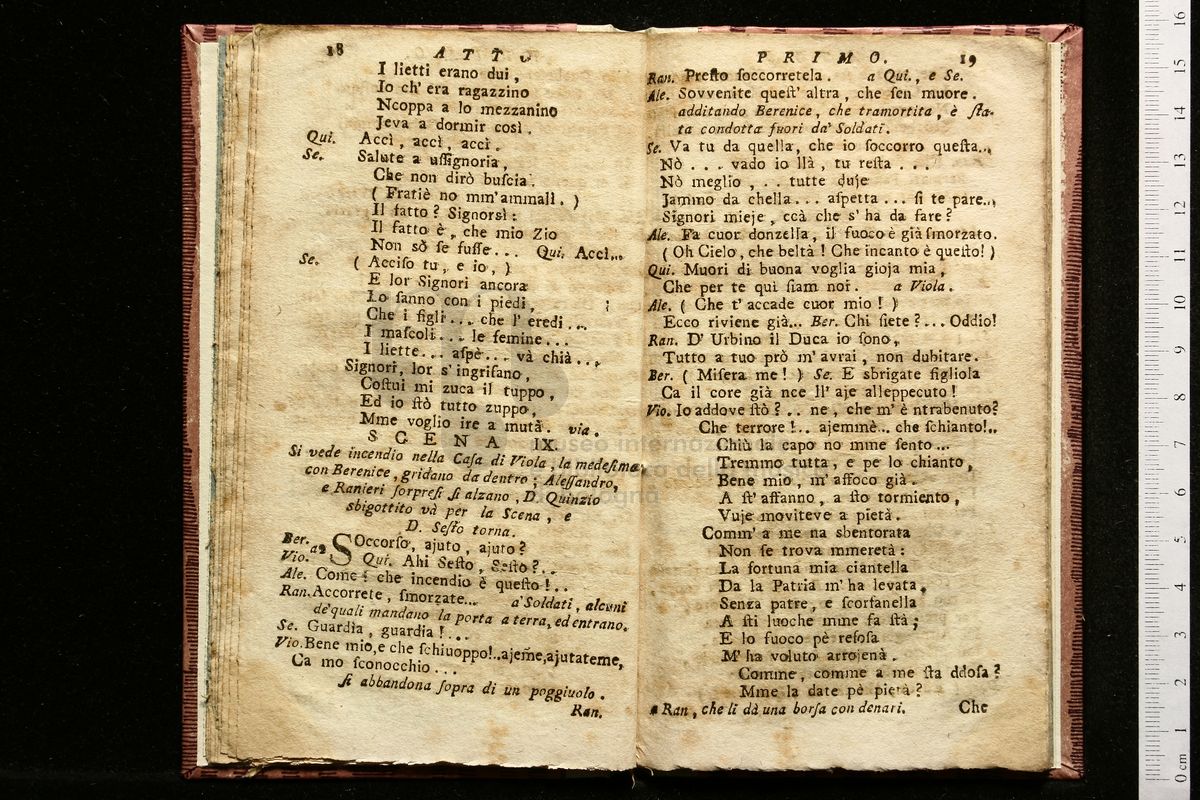 18 ATTO
I lietti erano dui,
Io ch' era ragazzino
Ncoppa a lo mezzanino
Jeva a dormir così.
Qui. Accì, accì, accì.
Se. Salute a uſſignoria,
Che non dirò buſcìa.
( Fratiè no mm'ammall. )
Il fatto? Signorsì:
Il fatto è, che mio Zio
Non sò ſe fuſſe... Qui. Accì...
Se. ( Acciſo tu, e io, )
E lor Signori ancora
Lo ſanno con i piedi,
Che i figli... che l' eredi...
I maſcoli... le femine...
I liette... aſpè... và chià...
Signori, lor s' ingriſano,
Coſtui mi zuca il tuppo,
Ed io ſtò tutto zuppo,
Mme voglio ire a mutà. via.
SCENA IX.
Si vede incendio nella Caſa di Viola, la medeſima
con Berenice, gridano da dentro; Aleſſandro,
e Ranieri ſorpreſi ſi alzano, D. Quinzio
sbigottito và per la Scena, e
D. Seſto torna.
Ber. Vio. a2 SOccorſo, ajuto, ajuto?
Qui. Ahi Seſto, Seſto?..
Ale. Come! che incendio è queſto!..
Ran. Accorrete, ſmorzate... a' Soldati, alcuni
de' quali mandano la porta a terra, ed entrano.
Se. Guardia, guardia!...
Vio. Bene mio, e che ſchiuoppo!.. ajeme, ajutateme,
Ca mo ſconocchio...
ſi abbandona ſopra di un poggiuolo.
Ran.
PRIMO. 19
Ran. Preſto ſoccorretela. a Qui., e Se.
Ale. Sovvenite queſt' altra, che ſen muore.
additando Berenice, che tramortita, è ſta-
ta condotta fuori da' Soldati.
Se. Va tu da quella, che io ſoccorro queſta...
Nò... vado io llà, tu reſta...
Nò meglio,... tutte duje
Jammo da chella... aſpetta... ſi te pare...
Signori mieje, ccà che s' ha da fare?
Ale. Fa cuor donzella, il fuoco è già ſmorzato.
( Oh Cielo, che beltà! Che incanto è queſto! )
Qui. Muori di buona voglia gioja mia,
Che per te quì ſiam noi. a Viola.
Ale. ( Che t' accade cuor mio! )
Ecco riviene già... Ber. Chi ſiete?... Oddio!
Ran. D' Urbino il Duca io ſono,
Tutto a tuo prò m' avrai, non dubitare.
Ber. ( Miſera me! ) Se. E sbrigate figliola
Ca il core già nce ll' aje alleppecuto!
Vio. Io addove ſtò?.. ne, che m' è ntrabenuto?
Che terrore!.. ajemmè... che ſchianto!..
Chiù la capo no mme ſento...
Tremmo tutta, e pe lo chianto,
Bene mio, m' affoco già.
A ſt' affanno, a ſto tormiento,
Vuje moviteve a pietà.
Comm' a me na sbentorata
Non ſe trova mmeretà:
La fortuna mia ciantella
Da la Patria m' ha levata,
Senza patre, e ſcorfanella
A ſti luoche mme fa ſtà;
E lo fuoco pè reſoſa
M' ha voluto arrojenà.
Comme, comme a me ſta ddoſa?
Mme la date pè pietà?
a Ran, che li dà una borſa con denari. Che